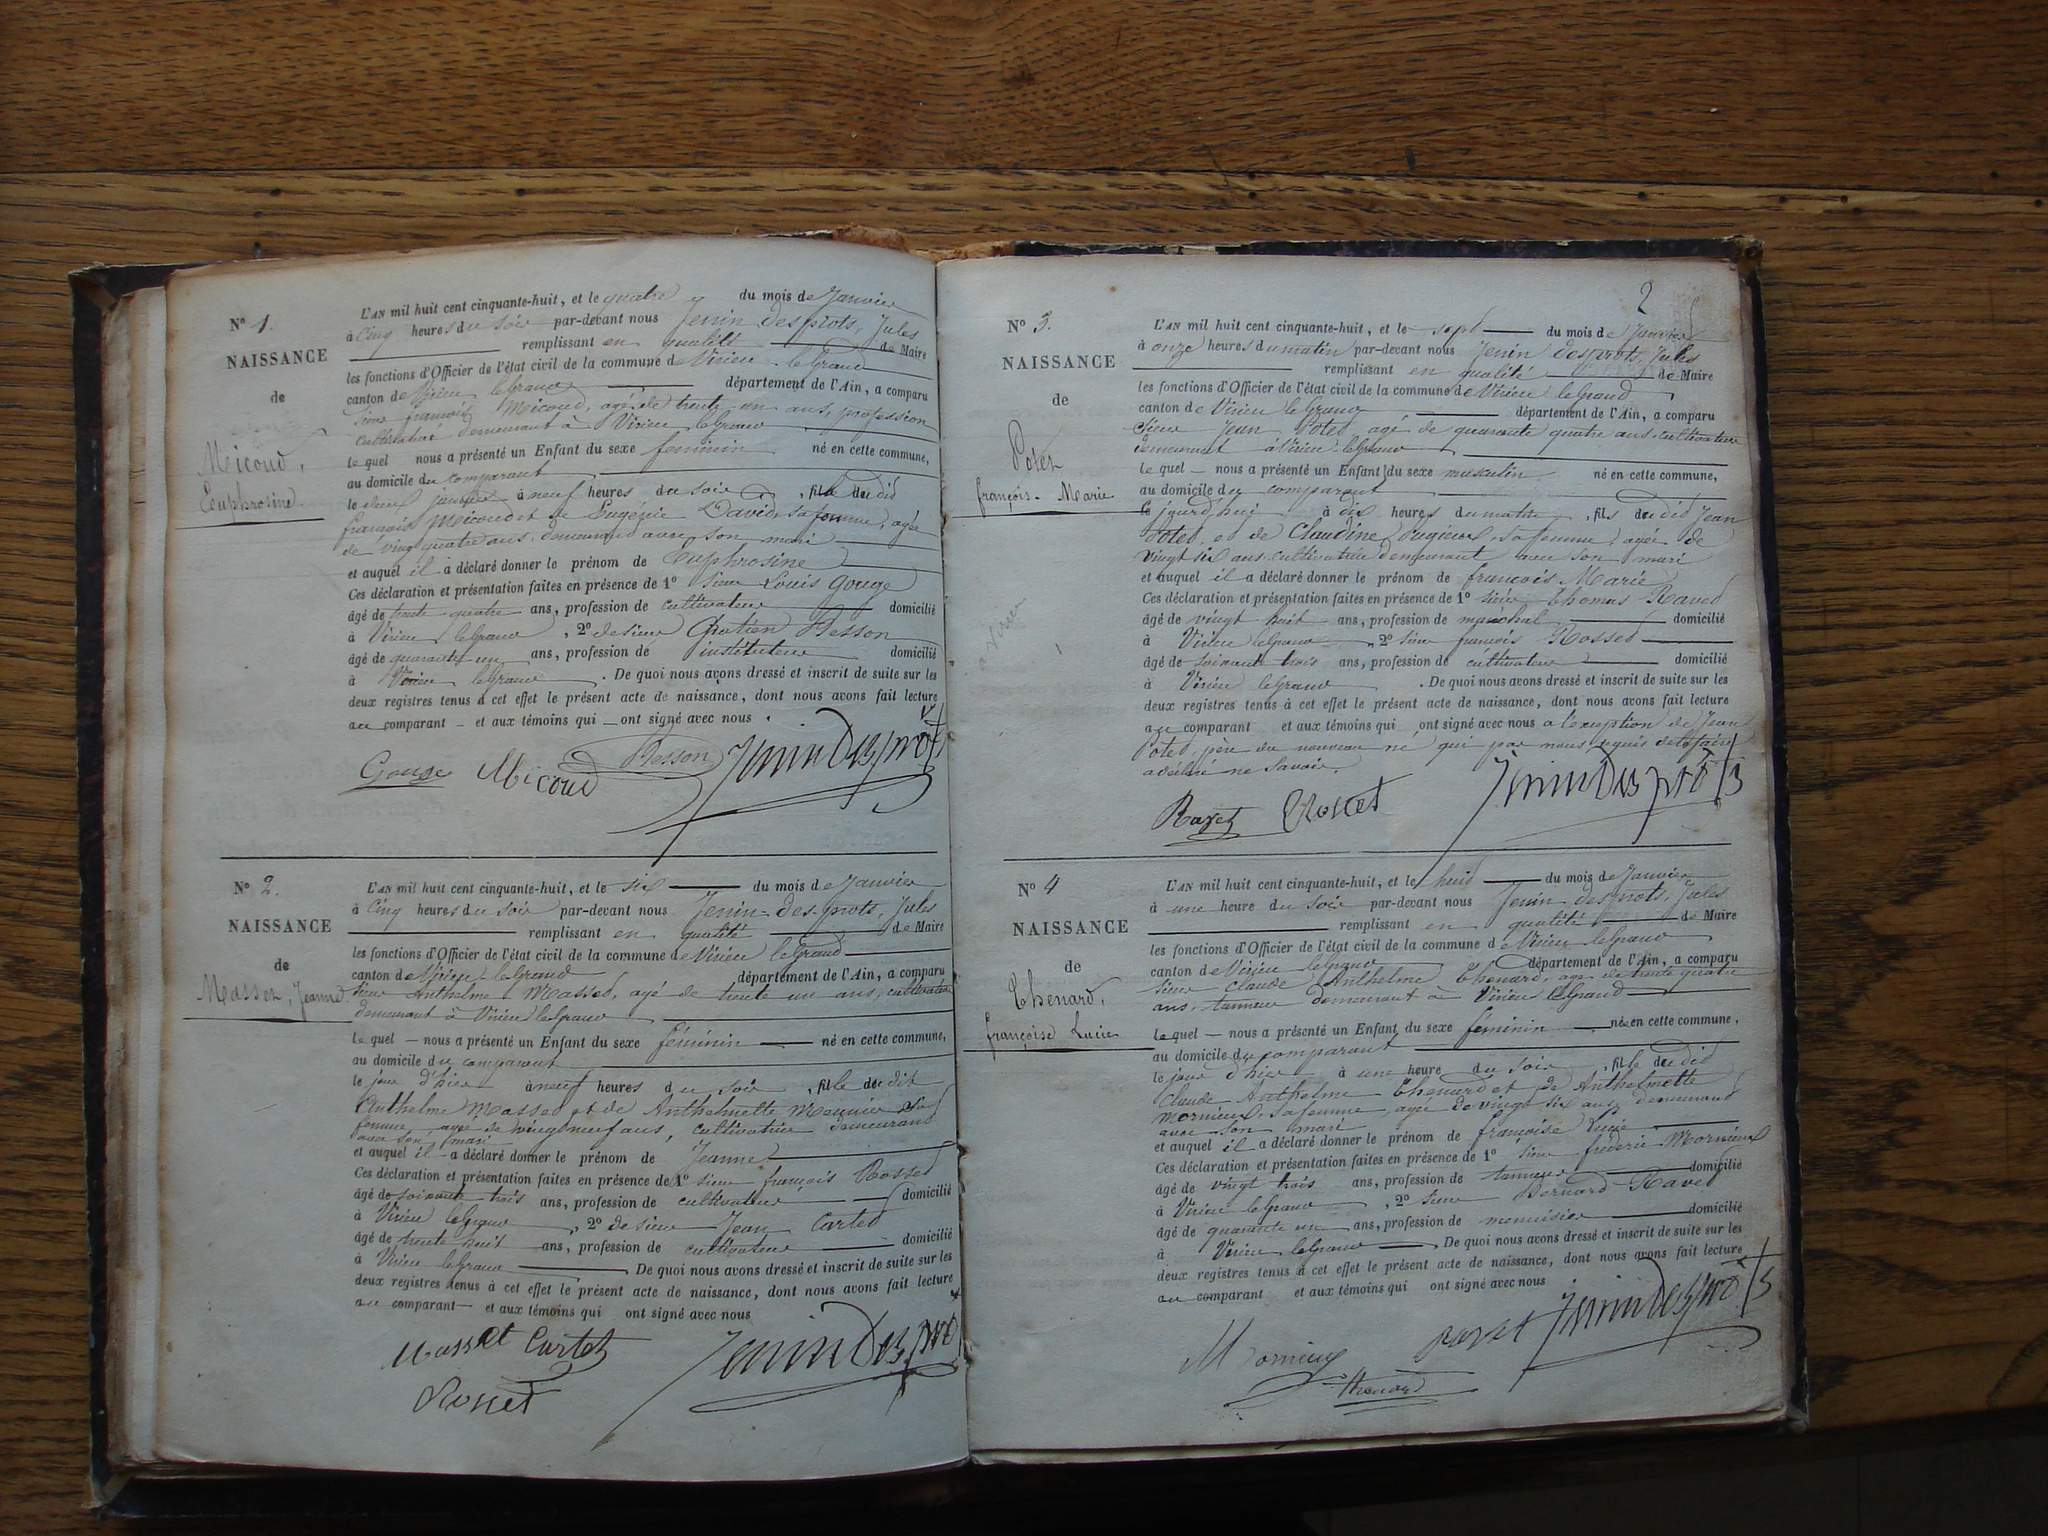 N° 1.
NAISSANCE
de
Micoud,
Euphrosine
L'AN mil huit cent cinquante-huit, et le quatre du mois de Janvier
à Cinq heures du soir par-devant nous Jenin desprots, Jules
remplissant en qualité de Maire
les fonctions d'Officier de l'état civil de la commune de Virieu leGrand
canton de Virieu leGrand département de l'Ain, a comparu
sieur françois Micoud, agé de trente un ans, profession
cultivateur demeurant à Virieu leGrand
le quel nous a présenté un Enfant du sexe feminin né en cette commune,
au domicile du comparant
le deux janvier à neuf heures du soir, fille du dit
françois Micoud et de Eugénie David, sa femme, agée
de vingt quatre ans, demeurant avec son mari
et auquel il a déclaré donner le prénom de Euphrosine
Ces déclaration et présentation faites en présence de 1° sieur Louis Gouge
âgé de trente quatre ans, profession de cultivateur domicilié
à Virieu leGrand, 2° de sieur Gratien Besson
âgé de quarante un ans, profession de instituteur domicilié
à Virieu leGrand. De quoi nous avons dressé et inscrit de suite sur les
deux registres tenus à cet effet le présent acte de naissance, dont nous avons fait lecture
au comparant et aux témoins qui ont signé avec nous.
Gouge Micoud Besson Jenin Desprots
N° 2.
NAISSANCE
de
Masset, Jeanne
L'AN mil huit cent cinquante-huit, et le six du mois de Janvier
à Cinq heures du soir par-devant nous Jenin-des-prots, Jules
remplissant en qualité de Maire
les fonctions d'Officier de l'état civil de la commune de Virieu leGrand
canton de Virieu leGrand département de l'Ain, a comparu
sieur Anthelme Masset, agé de trente un ans, cultivateur
demeurant à Virieu leGrand
le quel nous a présenté un Enfant du sexe féminin né en cette commune,
au domicile du comparant
le jour d'hier à neuf heures du soir, fille du dit
Anthelme Masset et de Anthelmette Meunier sa
femme, agée de vingt neuf ans, cultivatrice demeurant
avec son mari
et auquel il a déclaré donner le prénom de Jeanne
Ces déclaration et présentation faites en présence de 1° sieur françois Rosset
âgé de soixante trois ans, profession de cultivateur domicilié
à Virieu leGrand, 2° de sieur Jean Cartet
âgé de trente huit ans, profession de cultivateur domicilié
à Virieu leGrand De quoi nous avons dressé et inscrit de suite sur les
deux registres tenus à cet effet le présent acte de naissance, dont nous avons fait lecture
au comparant et aux témoins qui ont signé avec nous
Masset Cartet Jenin Desprots
Rosset
2
N° 3.
NAISSANCE
de
Potet
françois-Marie
L'AN mil huit cent cinquante-huit, et le sept du mois de Janvier
à onze heures du matin par-devant nous Jenin desprots, Jules
remplissant en qualité de Maire
les fonctions d'Officier de l'état civil de la commune de Virieu leGrand
canton de Virieu leGrand département de l'Ain, a comparu
sieur Jean Potet agé de quarante quatre ans cultivateur
demeurant à Virieu leGrand
le quel nous a présenté un Enfant du sexe masculin né en cette commune,
au domicile du comparant
ce jourd'hui à dix heures du matin, fils du dit Jean
Potet, et de Claudine Pugieux, sa femme, agée de
vingt six ans cultivatrice demeurant avec son mari
et auquel il a déclaré donner le prénom de françois Marie
Ces déclaration et présentation faites en présence de 1° sieur Thomas Ravet
âgé de vingt huit ans, profession de maréchal domicilié
à Virieu leGrand, 2° sieur françois Rosset
âgé de soixante trois ans, profession de cultivateur domicilié
à Virieu leGrand. De quoi nous avons dressé et inscrit de suite sur les
deux registres tenus à cet effet le présent acte de naissance, dont nous avons fait lecture
au comparant et aux témoins qui ont signé avec nous a l'exeption de Jean
Potet, père du nouveau né, qui par nous requis de le faire
a déclaré ne savoir.
Ravet Rosset Jenin Desprots
N° 4
NAISSANCE
de
Thenard,
françoise Lucie
L'AN mil huit cent cinquante-huit, et le huit du mois de Janvier
à une heure du soir par-devant nous Jenin desprots, Jules
remplissant en qualité de Maire
les fonctions d'Officier de l'état civil de la commune de Virieu leGrand
canton de Virieu leGrand département de l'Ain, a comparu
sieur Claude Anthelme Thenard, agé de trente quatre
ans, tanneur demeurant à Virieu leGrand
le quel nous a présenté un Enfant du sexe féminin née en cette commune,
au domicile du comparant
le jour d'hier à une heure du soir, fille du dit
Claude Anthelme Thenard et de Anthelmette
Mornieux, sa femme agée de vingt six ans, demeurant
avec son mari
et auquel il a déclaré donner le prénom de françoise Lucie
Ces déclaration et présentation faites en présence de 1° sieur fréderic Mornieux
âgé de vingt trois ans, profession de tanneur domicilié
à Virieu leGrand, 2° sieur Bernard Ravet
âgé de quarante un ans, profession de menuisier domicilié
à Virieu leGrand De quoi nous avons dressé et inscrit de suite sur les
deux registres tenus à cet effet le présent acte de naissance, dont nous avons fait lecture
au comparant et aux témoins qui ont signé avec nous
Mornieux Ravet Jenin Desprots
Thenard